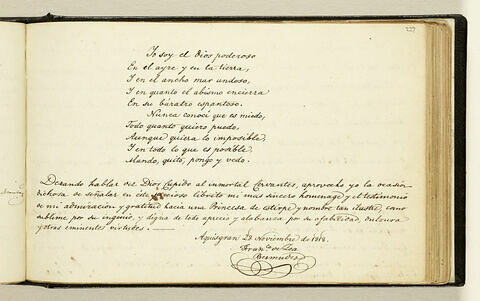 227
Yo soy el Dios poderoso
En el ayre y en la tierra,
Y en el ancho mar undoso,
Y en quanto el abismo encierra
En su báratro espantoso.
Nunca conocí que es miedo,
Todo quanto quiero puedo,
Aunque quiera lo imposible,
Y en todo lo que es posible
Mando, quito, pongo y vedo.
Dexando hablar del Dios Cupido al inmortal Cervantes, aprovecho yo la ocasion
dichosa de señalar en este precioso librito mi mas sincero homenage y el testimonio
de mi admiracion y gratitud hacia una Princesa de estirpe y nombre tan ilustre, como
sublime por su ingenio, y digna de todo aprecio y alabanza por su afabilidad, dulzura
y otras eminentes virtudes.
Aquisgran 23 Noviembre de 1818.
Franco de Zea
Bermudez